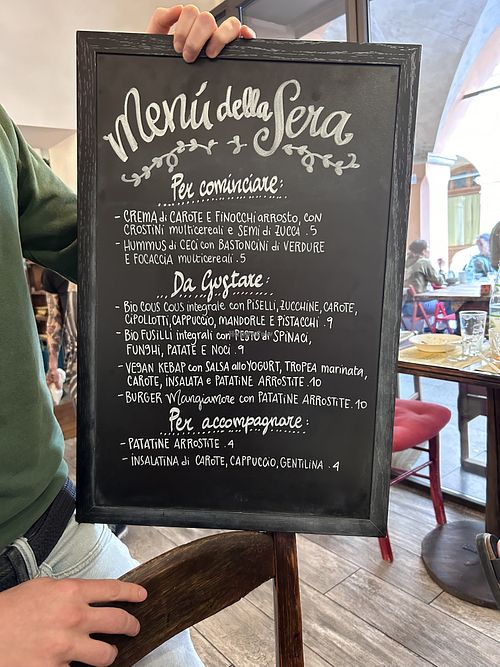 Menú della Sera
Per cominciare:
- CREMA di CAROTE E FINOCCHI arrosto, con
CROSTINI multicereali E SEMI di ZUCCA . 5
- HUMMUS di CECI con BASTONCINI di VERDURE
E FOCACCIA multicereali . 5
Da Gustare:
- Bio COUS COUS integrale con PISELLI, ZUCCHINE, CAROTE,
CIPOLLOTTI, CAPPUCCIO, MANDORLE E PISTACCHI . 9
- Bio FUSILLI integrali con PESTO di SPINACI,
FUNGHI, PATATE E NOCI . 9
- VEGAN KEBAP con SALSA allo YOGURT, TROPEA marinata,
CAROTE, INSALATA E PATATINE ARROSTITE . 10
- BURGER Mangiamore con PATATINE ARROSTITE . 10
Per accompagnare:
- PATATINE ARROSTITE . 4
- INSALATINA di CAROTE, CAPPUCCIO, GENTILINA . 4